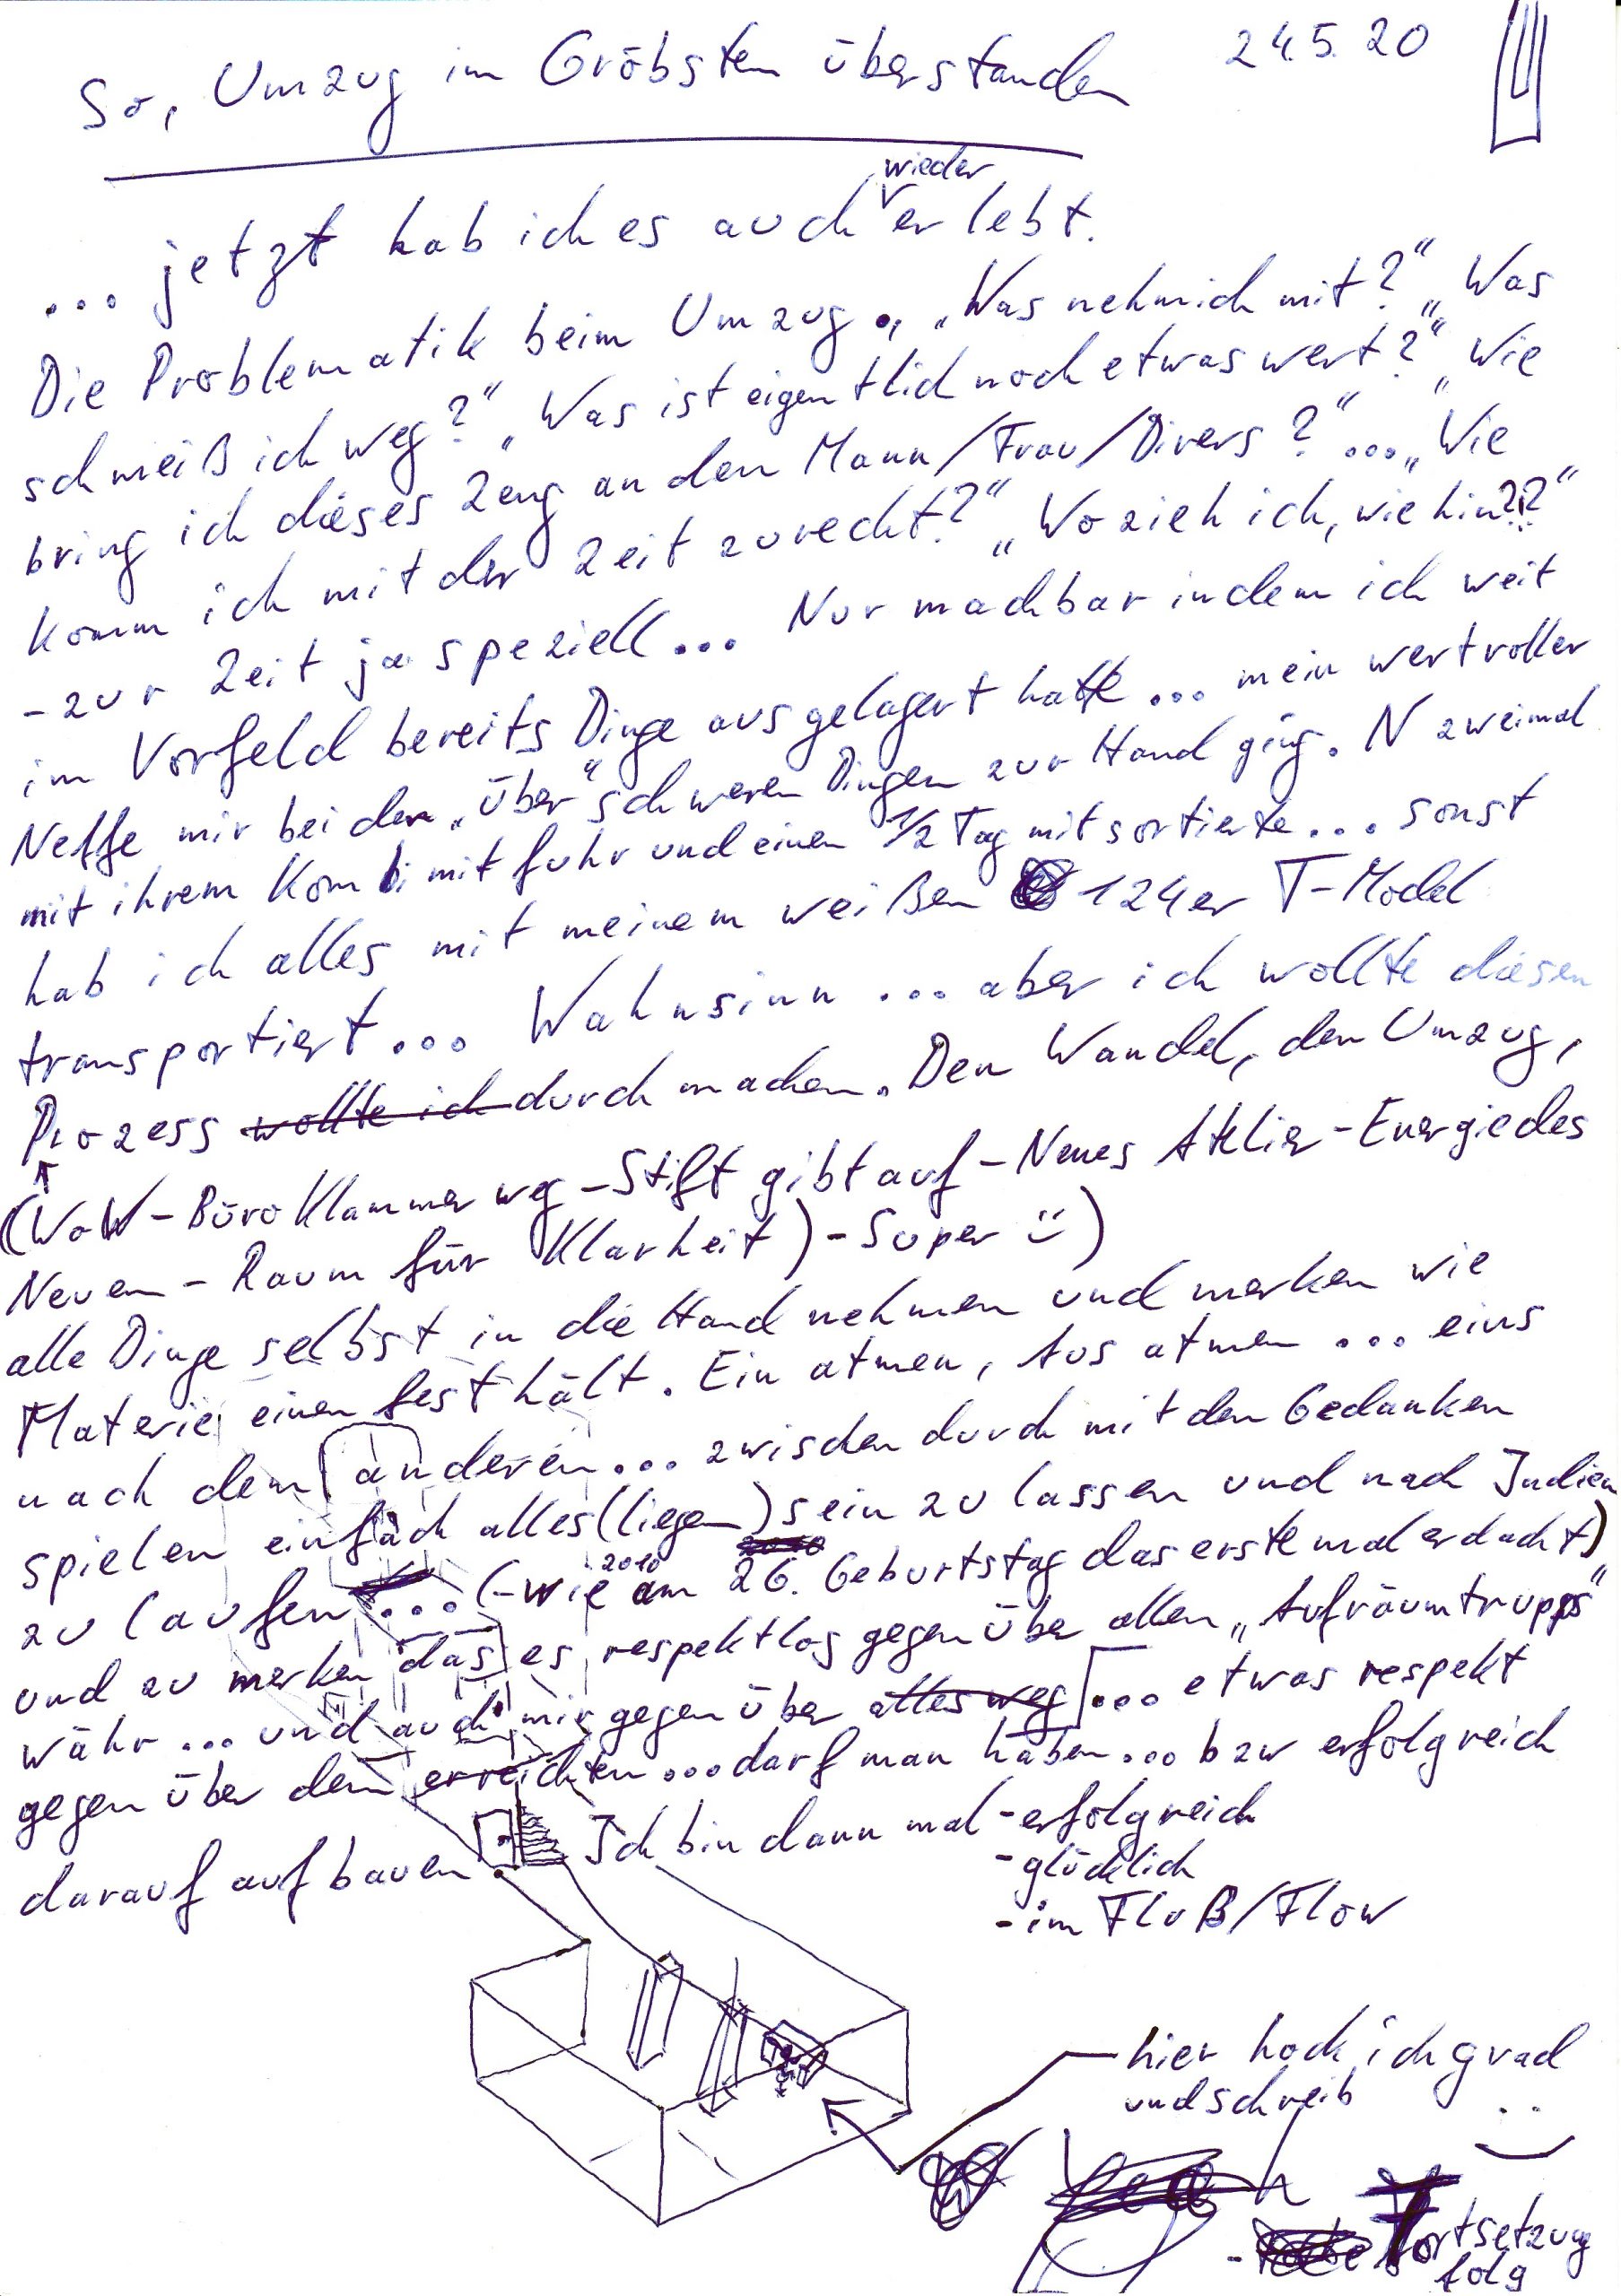 So, Umzug im Gröbsten überstanden 24.5.20
wieder
... jetzt hab ich es auch erlebt.
Die Problematik beim Umzug., „Was nehm ich mit?“ „Was
schmeiß ich weg?“ „Was ist eigentlich noch etwas wert?“ „Wie
bring ich dieses Zeug an den Mann/Frau/Divers?“... „Wie
komm ich mit der Zeit zurecht?“ „Wo zieh ich, wie hin??“
- zur Zeit ja speziell... Nur machbar indem ich weit
im Vorfeld bereits Dinge ausgelagert hatte ... mein wertvoller
Neffe mir bei den „über“schweren Dingen zur Hand ging. N zweimal
mit ihrem Kombi mitfuhr und einen 1/2 Tag mit sortierte... sonst
hab ich alles mit meinem weißen 124er T-Model
transportiert... Wahnsinn ... aber ich wollte diesen
Prozess wollte ich durchmachen. Den Wandel, den Umzug,
(WoW - Büro Klammer weg - Stift gibt auf - Neues Atelier - Energie des
Neuen - Raum für Klarheit) - Super :))
alle Dinge selbst in die Hand nehmen und merken wie
Materie einen fest hält. Ein atmen, Aus atmen ... eins
nach dem anderen... zwischen durch mit den Gedanken
spielen einfach alles (liegen) sein zu lassen und nach Indien
zu laufen ... (- wie am 26. Geburtstag das erste mal erdacht)
2010
und zu merken das es respektlos gegenüber allen „Aufräumtrupps“
währ ... und auch mir gegenüber alles weg ... etwas respekt
gegenüber dem erreichten ... darf man haben ... bzw erfolgreich
darauf aufbauen Ich bin dann mal - erfolgreich
- glücklich
- im Fluß/Flow
hier hock ich grad
und schreib
- Fortsetzung
folg